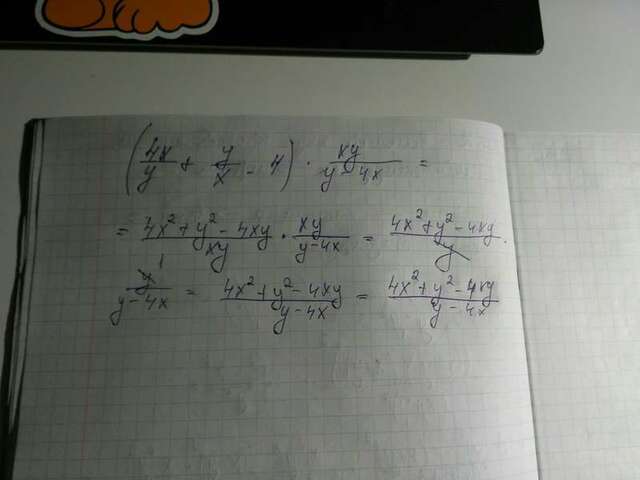 (4x/y + y/x - 4) · xy/(y-4x) =
= (4x²+y²-4xy)/xy · xy/(y-4x) = (4x²+y²-4xy)/y ·
y/(y-4x) 1 = (4x²+y²-4xy)/(y-4x) = (4x²+y²-4xy)/(y-4x)